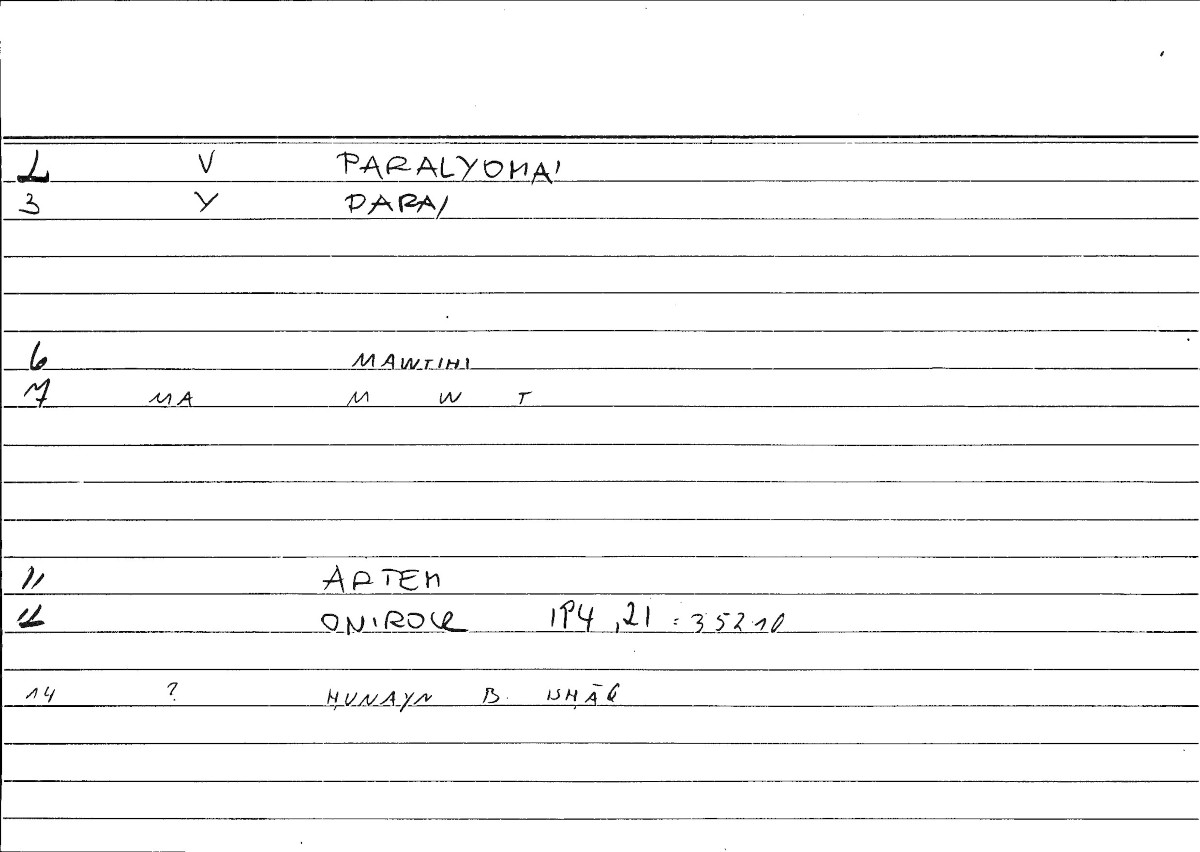 2 V PARALYOMAI
3 Y PARA/
6 MAWTIHI
7 MA M W T
11 ARTEM
12 ONIROCR 194,21 : 352.10
14 ? ḤUNAYN B. ISḤĀQ